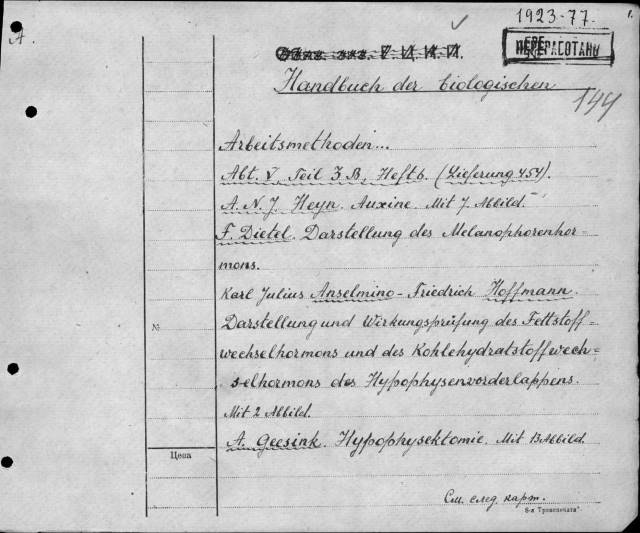 1923-77.
1.
A.
ПЕРЕРАБОТАНО
Handbuch der biologischen
144
Arbeitsmethoden...
Abt. V, Teil 3 B, Heft 6. (Lieferung 454).
A. N. J. Heyn. Auxine. Mit 7 Abbild.
F. Dietel. Darstellung des Melanophorenhor-
mons.
Karl Julius Anselmino - Friedrich Hoffmann.
Darstellung und Wirkungsprüfung des Fettstoff-
wechselhormons und des Kohlehydratstoffwech-
selhormons des Hypophysenvorderlappens.
Mit 2 Abbild.
A. Geesink. Hypophysektomie. Mit 13 Abbild.
№
Цена
См. след. карт.
8-я Транспечать